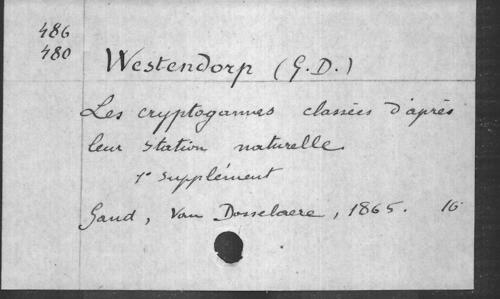 486
480
Westendorp (G.D.)
Les cryptogames classées d'après
leur station naturelle.
1° supplément
Gand, Van Dosselaere, 1865. 16